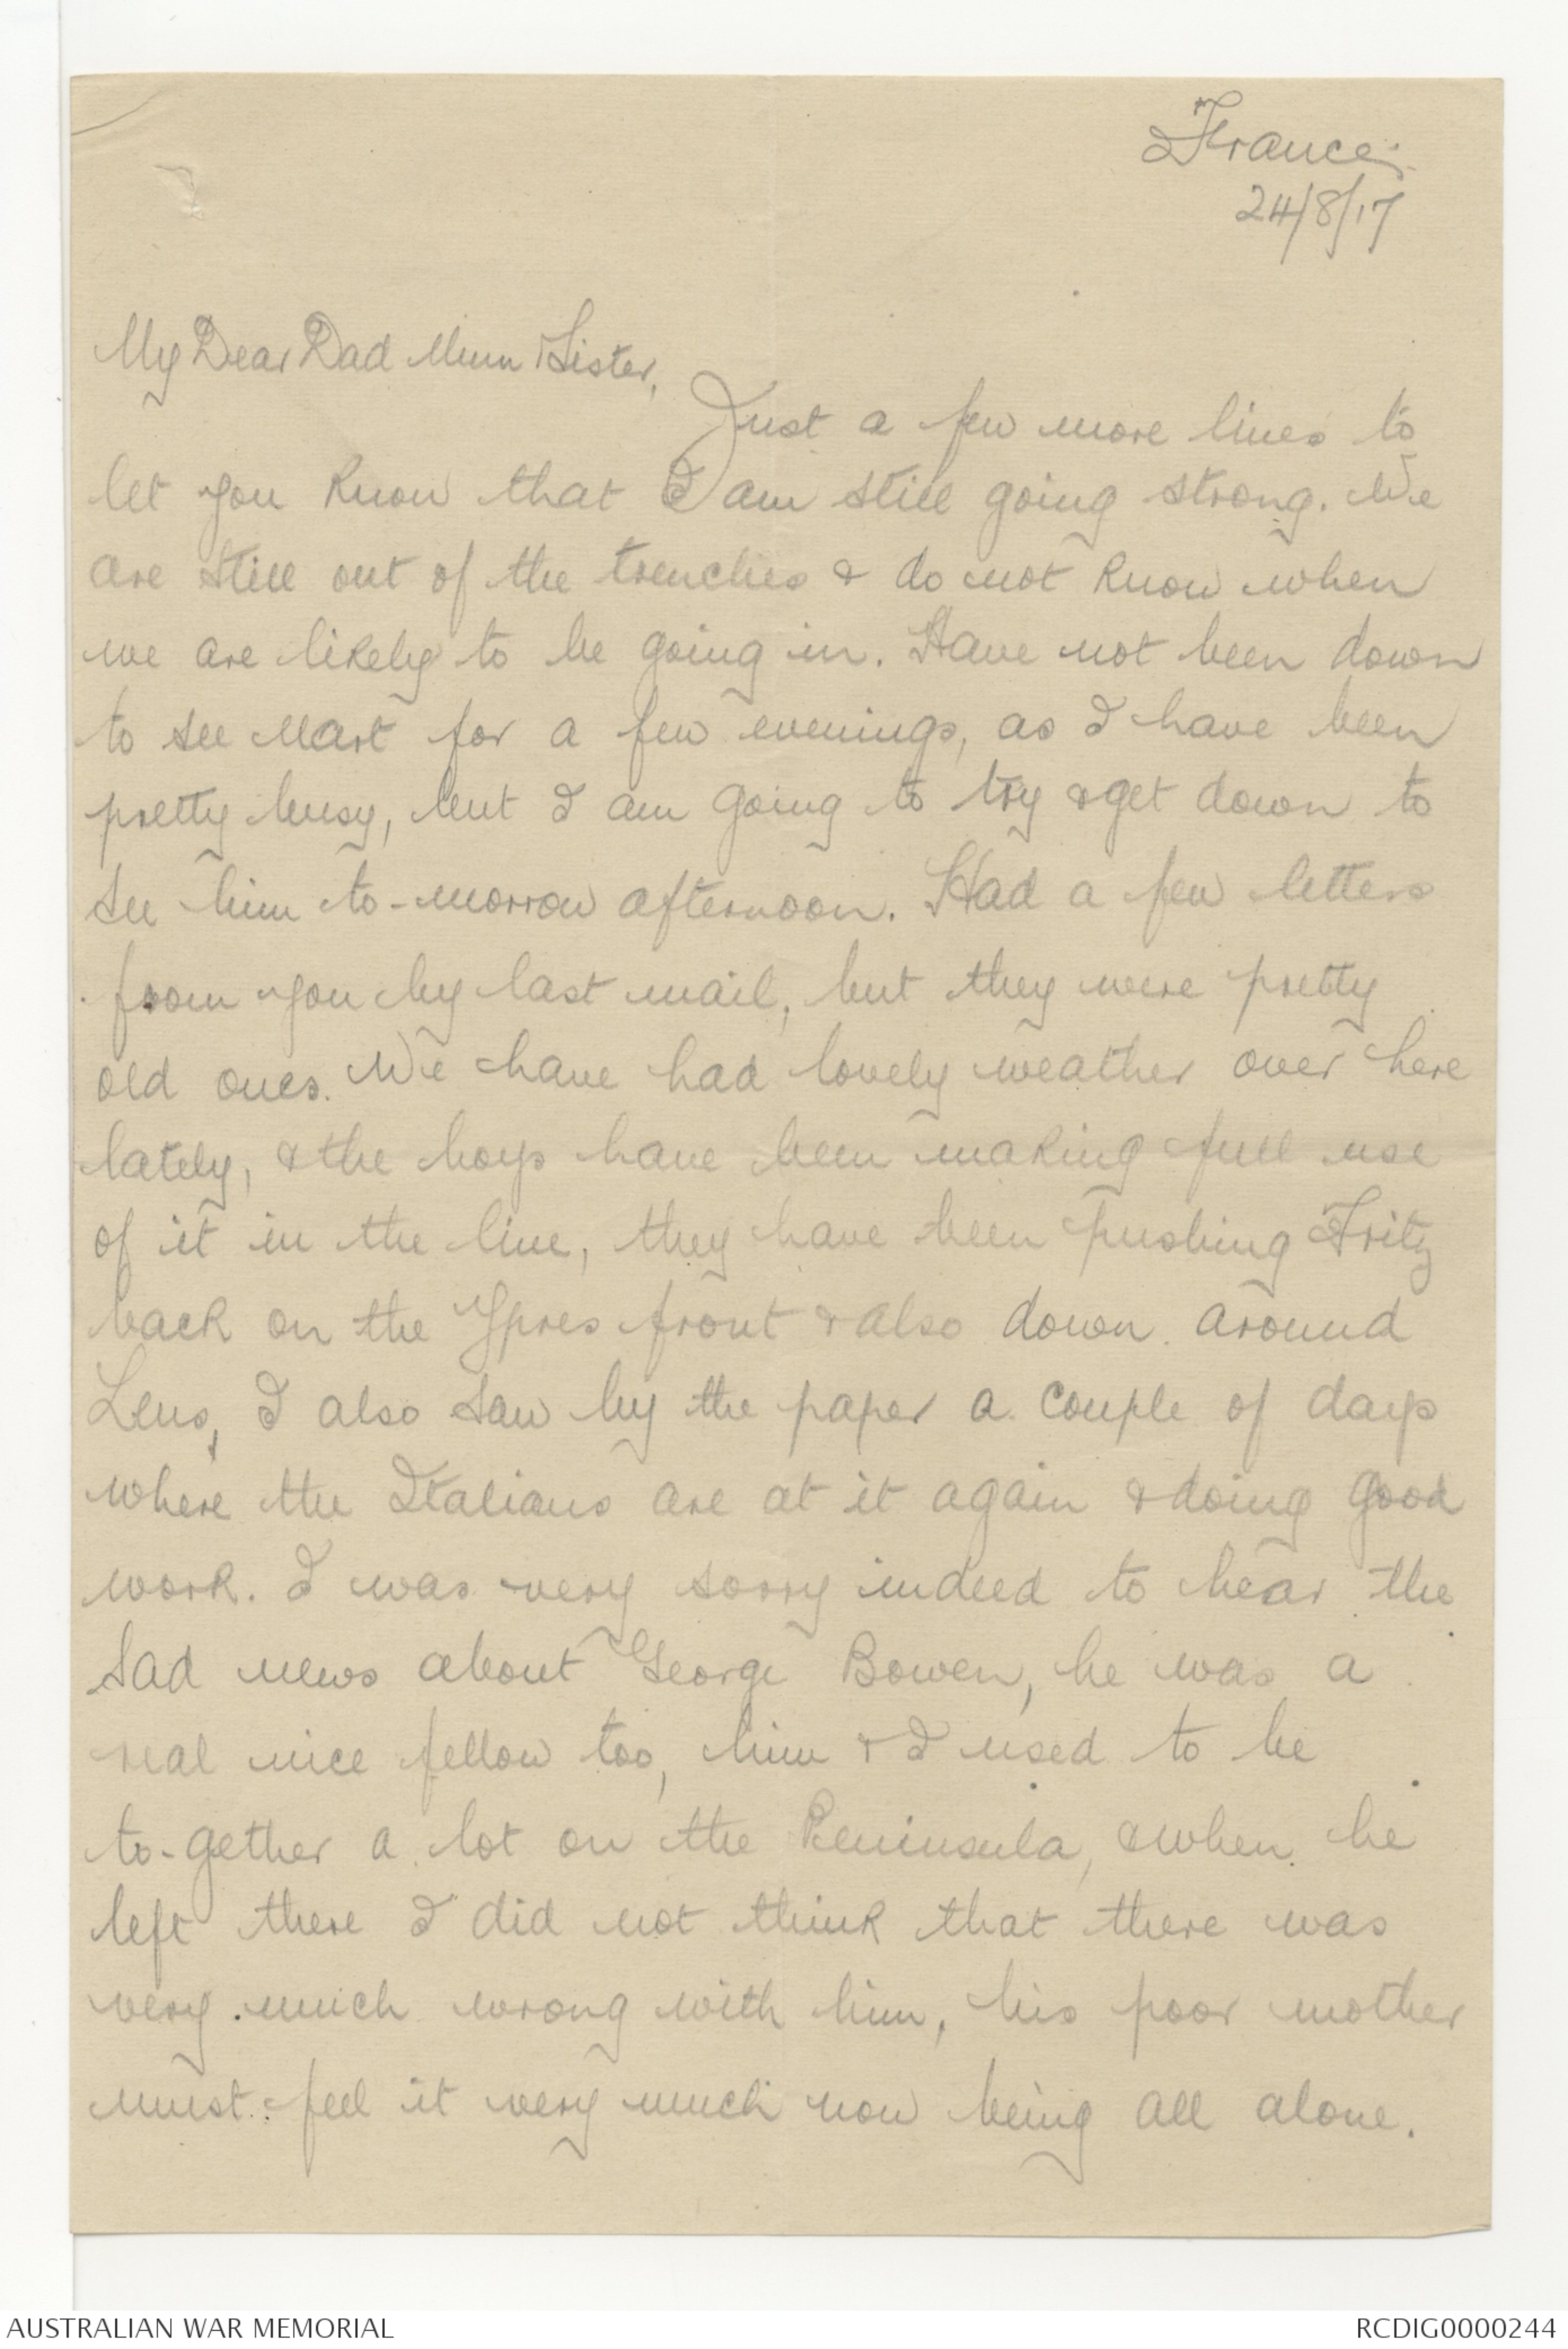 France.
24/8/17
My Dear Dad Mum & Sister,
Just a few more lines to
let you know that I am still going strong. We
are still out of the trenches & do not know when
we are likely to be going in. Have not been down
to see Mart for a few evenings, as I have been
pretty busy, but I am going to try & get down to
see him to-morrow afternoon. Had a few letters
from you by last mail, but they were pretty
old ones. We have had lovely weather over here
lately, & the boys have been making full use
of it in the line, they have been pushing Fritz
back on the Ypres front & also down around
Lens, I also saw by the paper a couple of days
where the Italians are at it again & doing good
work. I was very sorry indeed to hear the
sad news about George Bowen, he was a
real nice fellow too, him & I used to be
to-gether a lot on the Peninsula, & when he
left there I did not think that there was
very much wrong with him, his poor mother
must feel it very much now being all alone.
AUSTRALIAN WAR MEMORIAL
RCDIG0000244